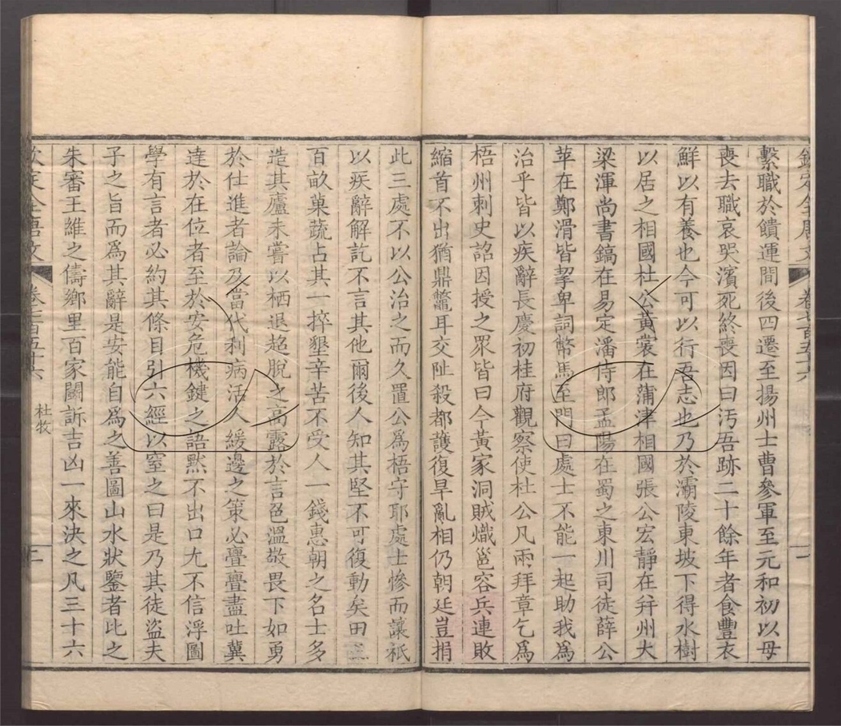 繫職於饋運間後四遷至揚州士曹參軍至元和初以母
喪去職哀哭濱死終喪因曰汚吾跡二十餘年者食豐衣
鮮以有養也今可以行吾志也乃於灞陵東坡下得水樹
以居之相國杜公黃裳在蒲津相國張公宏靜在幷州大
梁渾尚書鎬在易定潘侍郎孟陽在蜀之東川司徒薛公
苹在鄭滑皆挈卑詞幣馬至門曰處士不能一起助我爲
治乎皆以疾辭長慶初桂府觀察使杜公凡兩拜章乞爲
梧州刺史詔因授之眾皆曰今黃家洞賊熾邕容兵連敗
縮首不出猶鼎鼈耳交阯殺都護復旱亂相仍朝廷豈捐
此三處不以公治之而久置公爲梧守耶處士慘而讓祇
以疾辭解訖不言其他爾後人知其堅不可復動矣田三
百畝菓蔬占其一捽墾辛苦不受人一錢惠朝之名士多
造其廬未嘗以栖退超脫之高露於言色溫敬畏下如勇
於仕進者論及當代利病活人緩邊之策必亹亹盡吐冀
達於在位者至於安危機鍵之語黙不出口尤不信浮圖
學有言者必約其條目引六經以窒之曰是乃其徒盜夫
子之旨而爲其辭是安能自爲之善圖山水狀鑒者比之
朱審王維之儔鄉里百家鬭訴吉凶一來決之凡三十六
欽定全唐文
卷七百五十六
杜牧
二